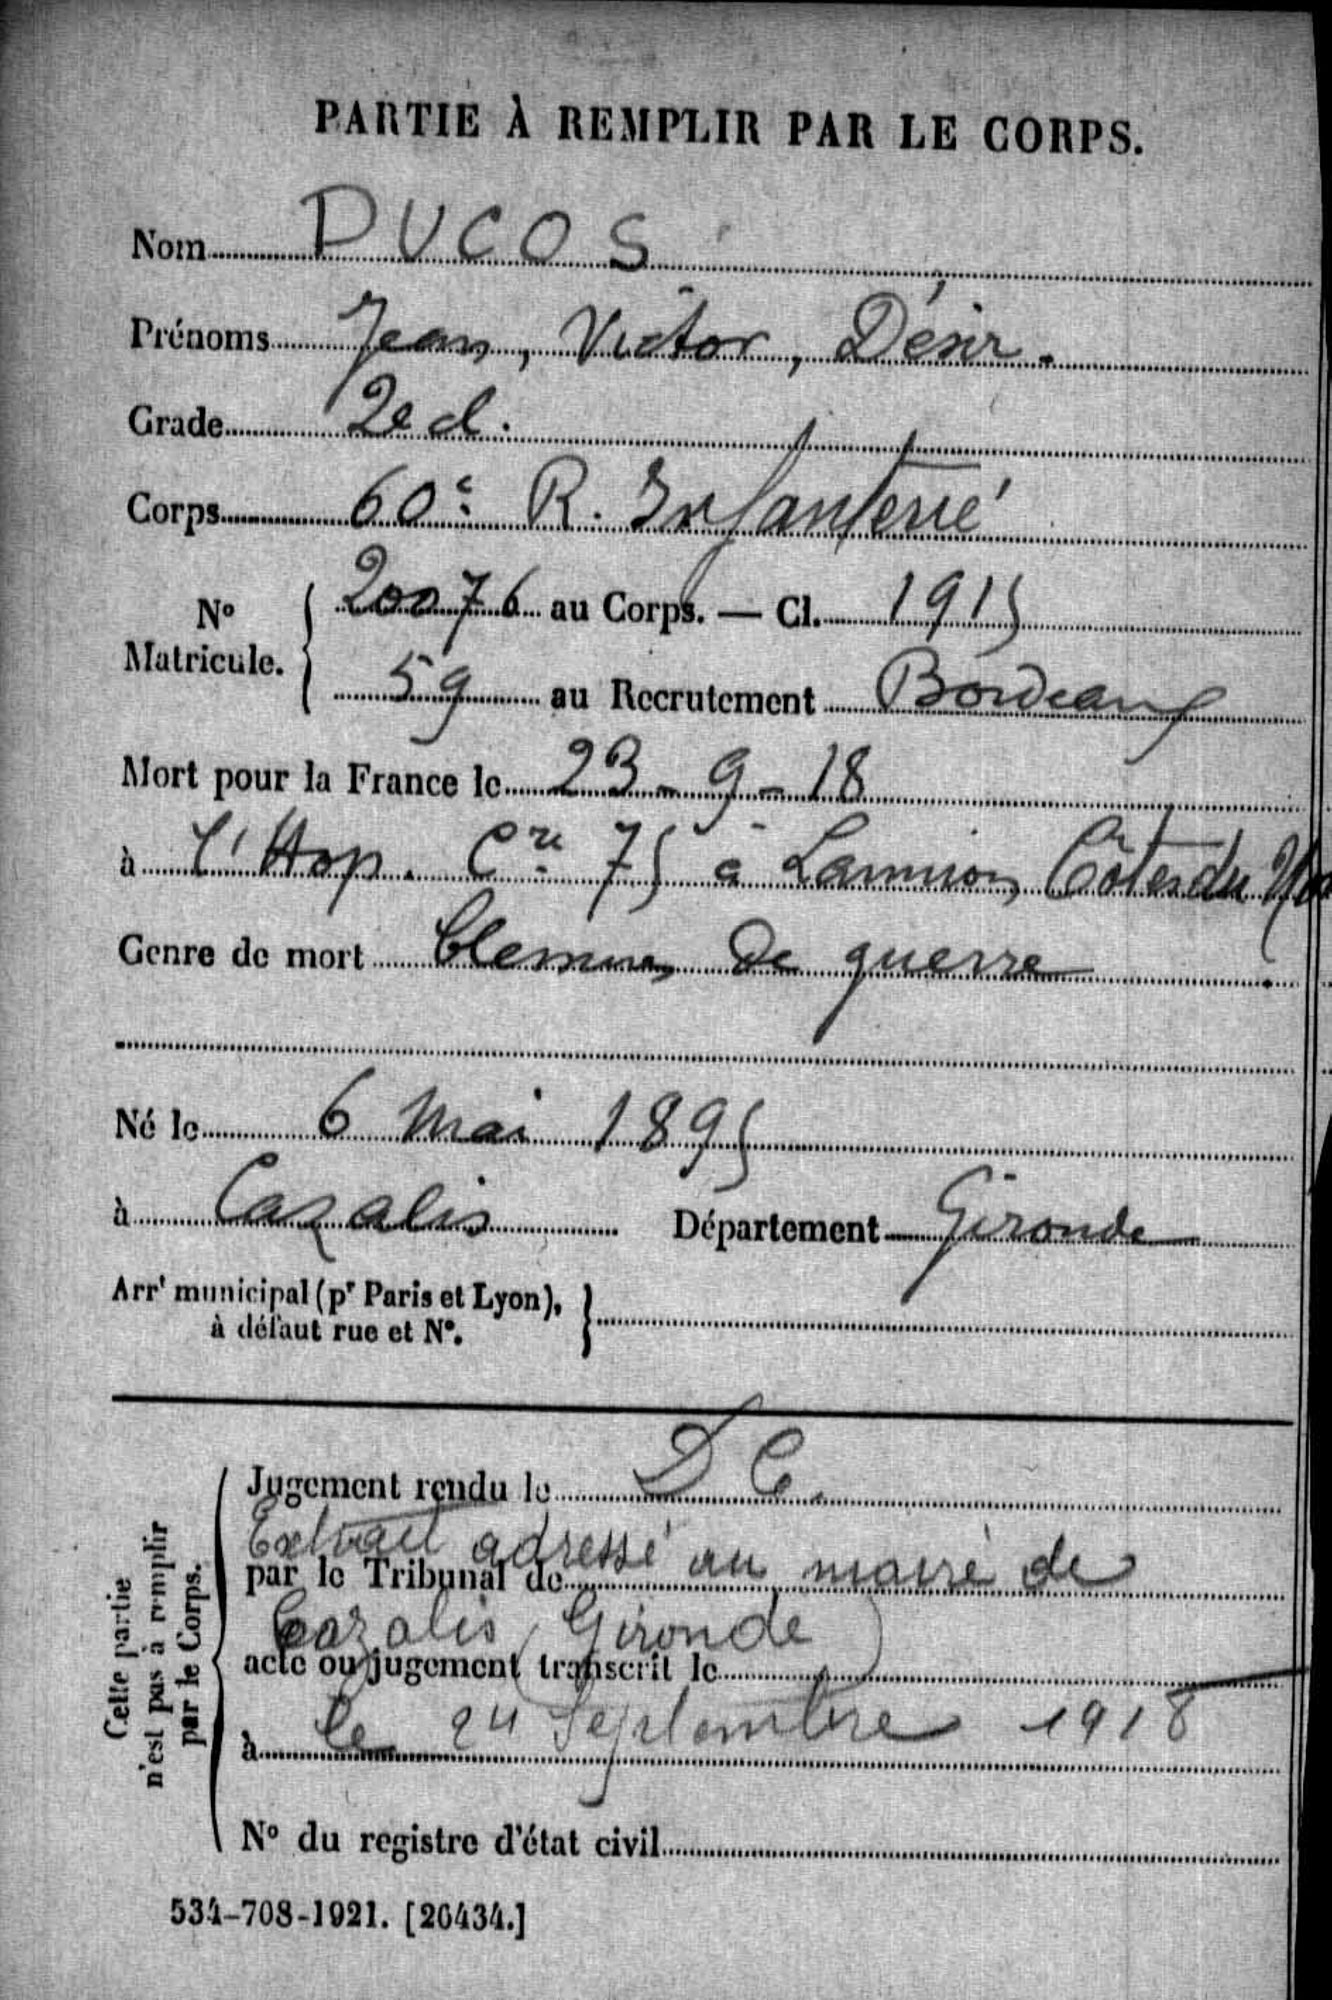 PARTIE À REMPLIR PAR LE CORPS.
Nom DUCOS
Prénoms Jean, Victor, Désir.
Grade 2e cl.
Corps 60e R. Infanterie
No Matricule. 20076 au Corps. — Cl. 1915
59 au Recrutement Bordeaux
Mort pour la France le 23-9-18
à l'Hop. Cre 75 à Lannion Côtes du
Genre de mort blessures de guerre
Né le 6 Mai 1895
à Cazalis Département Gironde
Arrt municipal (pr Paris et Lyon),
à défaut rue et No.
Cette partie n'est pas à remplir par le Corps.
Jugement rendu le D C.
Extrait adressé au maire de
par le Tribunal de
Cazalis (Gironde)
acte ou jugement transcrit le
à le 24 Septembre 1918
No du registre d'état civil
534-708-1921. [26434.]